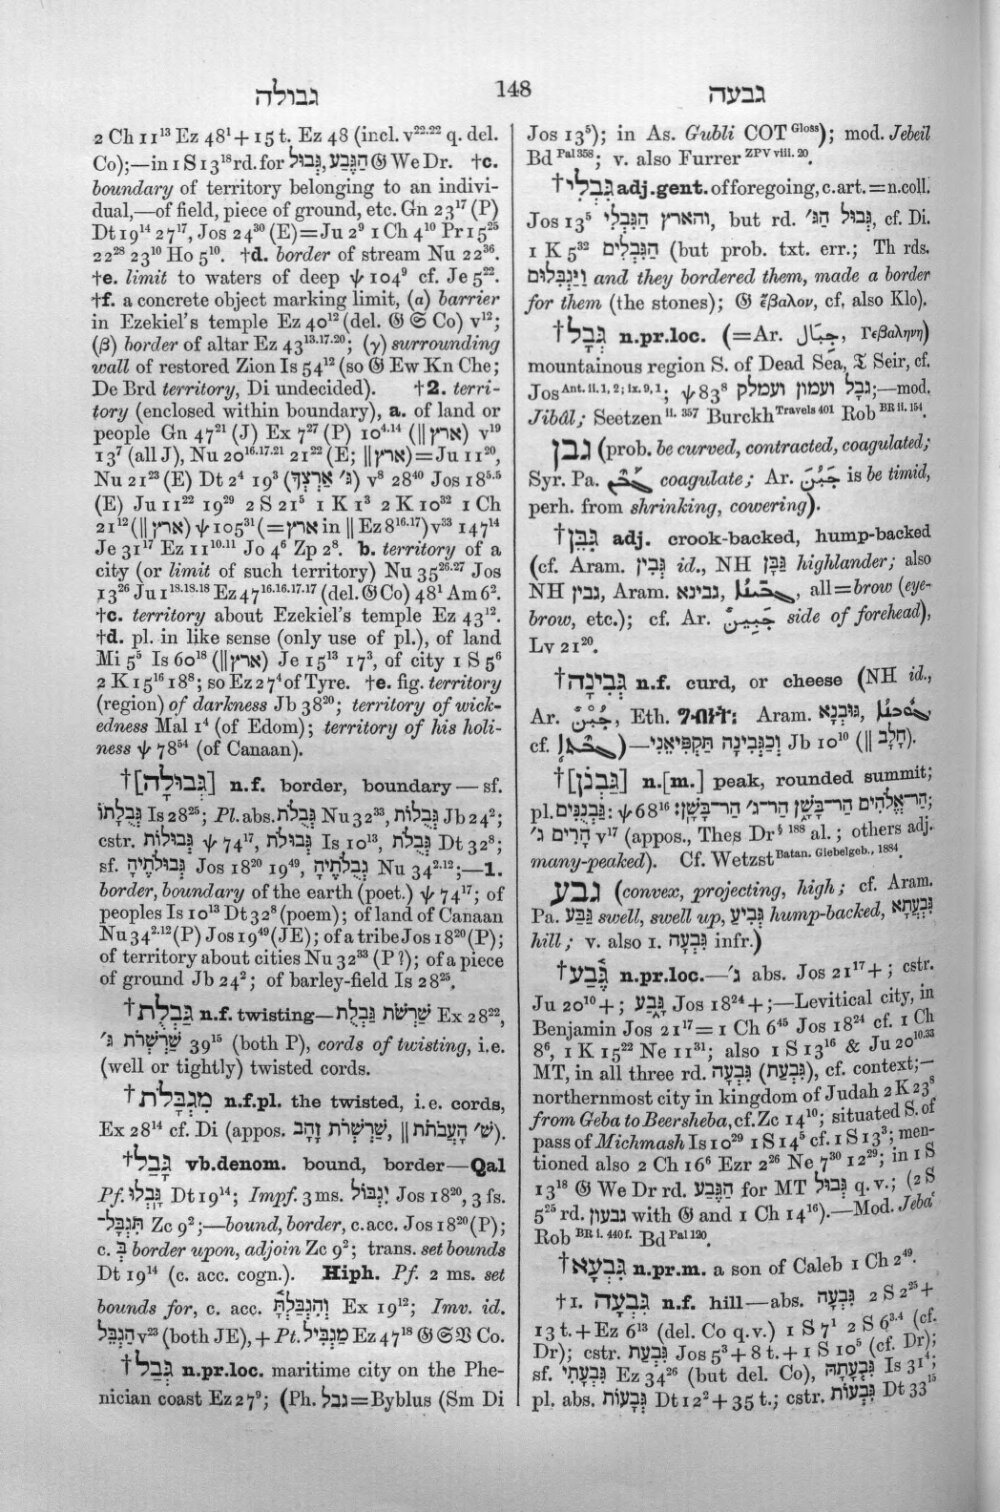 גבולה
148
גבעה
2 Ch 11¹³ Ez 48¹ + 15 t. Ez 48 (incl. v²²·²² q. del.
Co);—in 1 S 13¹⁸ rd. for הַגֶּבַע, גְּבוּל 𝔊 We Dr. †c.
boundary of territory belonging to an indivi-
dual,—of field, piece of ground, etc. Gn 23¹⁷ (P)
Dt 19¹⁴ 27¹⁷, Jos 24³⁰ (E)=Ju 2⁹ 1 Ch 4¹⁰ Pr 15²⁵
22²⁸ 23¹⁰ Ho 5¹⁰. †d. border of stream Nu 22³⁶.
†e. limit to waters of deep ψ 104⁹ cf. Je 5²².
†f. a concrete object marking limit, (α) barrier
in Ezekiel's temple Ez 40¹² (del. 𝔊 𝔖 Co) v¹²;
(β) border of altar Ez 43¹³·¹⁷·²⁰; (γ) surrounding
wall of restored Zion Is 54¹² (so 𝔊 Ew Kn Che;
De Brd territory, Di undecided). †2. terri-
tory (enclosed within boundary), a. of land or
people Gn 47²¹ (J) Ex 7²⁷ (P) 10⁴·¹⁴ (‖ ארץ) v¹⁹
13⁷ (all J), Nu 20¹⁶·¹⁷·²¹ 21²² (E; ‖ ארץ)=Ju 11²⁰,
Nu 21²³ (E) Dt 2⁴ 19³ (ג׳ אַרְצְךָ) v⁸ 28⁴⁰ Jos 18⁵·⁵
(E) Ju 11²² 19²⁹ 2 S 21⁵ 1 K 1³ 2 K 10³² 1 Ch
21¹² (‖ ארץ) ψ 105³¹ (=ארץ in ‖ Ez 8¹⁶·¹⁷) v³³ 147¹⁴
Je 31¹⁷ Ez 11¹⁰·¹¹ Jo 4⁶ Zp 2⁸. b. territory of a
city (or limit of such territory) Nu 35²⁶·²⁷ Jos
13²⁶ Ju 1¹⁸·¹⁸·¹⁸ Ez 47¹⁶·¹⁶·¹⁷·¹⁷ (del. 𝔊 Co) 48¹ Am 6².
†c. territory about Ezekiel's temple Ez 43¹².
†d. pl. in like sense (only use of pl.), of land
Mi 5⁵ Is 60¹⁸ (‖ ארץ) Je 15¹³ 17³, of city 1 S 5⁶
2 K 15¹⁶ 18⁸; so Ez 27⁴ of Tyre. †e. fig. territory
(region) of darkness Jb 38²⁰; territory of wick-
edness Mal 1⁴ (of Edom); territory of his holi-
ness ψ 78⁵⁴ (of Canaan).
†[גְּבוּלָה] n.f. border, boundary—sf.
גְּבֻלָתוֹ Is 28²⁵; Pl. abs. גְּבֻלֹת Nu 32³³, גְּבֻלוֹת Jb 24²;
cstr. גְּבוּלוֹת ψ 74¹⁷, גְּבוּלֹת Is 10¹³, גְּבֻלֹת Dt 32⁸;
sf. גְּבוּלֹתֶיהָ Jos 18²⁰ 19⁴⁹, גְבֻלֹתֶיהָ Nu 34²·¹²;—1.
border, boundary of the earth (poet.) ψ 74¹⁷; of
peoples Is 10¹³ Dt 32⁸ (poem); of land of Canaan
Nu 34²·¹² (P) Jos 19⁴⁹ (JE); of a tribe Jos 18²⁰ (P);
of territory about cities Nu 32³³ (P ?); of a piece
of ground Jb 24²; of barley-field Is 28²⁵.
†גַּבְלֻת n.f. twisting—שַׁרְשֹׁת גַּבְלֻת Ex 28²²,
שַׁרְשְׁרֹת ג׳ 39¹⁵ (both P), cords of twisting, i.e.
(well or tightly) twisted cords.
†מִגְבָּלֹת n.f.pl. the twisted, i.e. cords,
Ex 28¹⁴ cf. Di (appos. שַׁרְשְׁרֹת זָהָב, ‖ שׁ׳ הָעֲבֹתֹת).
†גָּבַל vb.denom. bound, border—Qal
Pf. גָּבְלוּ Dt 19¹⁴; Impf. 3 ms. יִגְבּוֹל Jos 18²⁰, 3 fs.
תִּגְבָּל־ Zc 9²;—bound, border, c. acc. Jos 18²⁰ (P);
c. בְּ border upon, adjoin Zc 9²; trans. set bounds
Dt 19¹⁴ (c. acc. cogn.). Hiph. Pf. 2 ms. set
bounds for, c. acc. וְהִגְבַּלְתָּ Ex 19¹²; Imv. id.
הַגְבֵּל v²³ (both JE), + Pt. מַגְבִּיל Ez 47¹⁸ 𝔊 𝔖 𝔙 Co.
†גְּבַל n.pr.loc. maritime city on the Phe-
nician coast Ez 27⁹; (Ph. גבל=Byblus (Sm Di
Jos 13⁵); in As. Gubli COT ᴳˡᵒˢˢ); mod. Jebeil
Bd ᴾᵃˡ ³⁵⁸; v. also Furrer ZPV viii. 20.
†גִּבְלִי adj.gent. of foregoing, c. art. = n.coll.
Jos 13⁵ והארץ הַגִּבְלִי, but rd. גְּבוּל הַגּ׳, cf. Di.
1 K 5³² הַגִּבְלִים (but prob. txt. err.; Th rds.
וַיַּגְבִּלוּם and they bordered them, made a border
for them (the stones); 𝔊 ἔβαλον, cf. also Klo).
†גְּבָל n.pr.loc. (=Ar. جِبَال, Γεβαληνη)
mountainous region S. of Dead Sea, 𝔗 Seir, cf.
Jos Ant. ii. 1, 2; ix. 9, 1; ψ 83⁸ גְּבָל ועמון ועמלק;—mod.
Jibâl; Seetzen ii. 357 Burckh Travels 401 Rob BR ii. 154.
גבן (prob. be curved, contracted, coagulated;
Syr. Pa. coagulate; Ar. جَبُنَ is be timid,
perh. from shrinking, cowering).
†גִּבֵּן adj. crook-backed, hump-backed
(cf. Aram. גְּבִין id., NH גִּבֵּן highlander; also
NH גבין, Aram. גבינא, all=brow (eye-
brow, etc.); cf. Ar. جَبِين side of forehead),
Lv 21²⁰.
†גְּבִינָה n.f. curd, or cheese (NH id.,
Ar. جُبْن, Eth. Aram. גּוּבְנָא,
cf. )—וְכַגְּבִינָה תַּקְפִּיאֵנִי Jb 10¹⁰ (‖ חָלָב).
†[גַּבְנֹן] n.[m.] peak, rounded summit;
pl. גַּבְנֻנִּים: ψ 68¹⁶ הַר־אֱלֹהִים הַר־בָּשָׁן הַר־ג׳ הַר־בָּשָׁן;
הָרִים ג׳ v¹⁷ (appos., Thes Dr § 188 al.; others adj.
many-peaked). Cf. Wetzst Batan. Giebelgeb., 1884.
גבע (convex, projecting, high; cf. Aram.
Pa. גַּבַּע swell, swell up, גְּבִיעַ hump-backed, גִּבְעֲתָא
hill; v. also 1. גִּבְעָה infr.)
†גֶּבַע n.pr.loc.—ג׳ abs. Jos 21¹⁷+; cstr.
Ju 20¹⁰+; גָּבַע Jos 18²⁴+;—Levitical city, in
Benjamin Jos 21¹⁷= 1 Ch 6⁴⁵ Jos 18²⁴ cf. 1 Ch
8⁶, 1 K 15²² Ne 11³¹; also 1 S 13¹⁶ & Ju 20¹⁰·³³
MT, in all three rd. גִּבְעָה (גִּבְעַת), cf. context;—
northernmost city in kingdom of Judah 2 K 23⁸
from Geba to Beersheba, cf. Zc 14¹⁰; situated S. of
pass of Michmash Is 10²⁹ 1 S 14⁵ cf. 1 S 13³; men-
tioned also 2 Ch 16⁶ Ezr 2²⁶ Ne 7³⁰ 12²⁹; in 1 S
13¹⁸ 𝔊 We Dr rd. הַגֶּבַע for MT גְּבוּל q. v.; (2 S
5²⁵ rd. גבעון with 𝔊 and 1 Ch 14¹⁶).—Mod. Jeba‘
Rob BR i. 440 f. Bd Pal 120.
†גִּבְעָא n.pr.m. a son of Caleb 1 Ch 2⁴⁹.
†1. גִּבְעָה n.f. hill—abs. גִּבְעָה 2 S 2²⁵+
13 t. + Ez 6¹³ (del. Co q.v.) 1 S 7¹ 2 S 6³·⁴ (cf.
Dr); cstr. גִּבְעַת Jos 5³ + 8 t. + 1 S 10⁵ (cf. Dr);
sf. גִּבְעָתִי Ez 34²⁶ (but del. Co), גִּבְעָתָהּ Is 31⁴;
pl. abs. גְּבָעוֹת Dt 12² + 35 t.; cstr. גִּבְעוֹת Dt 33¹⁵